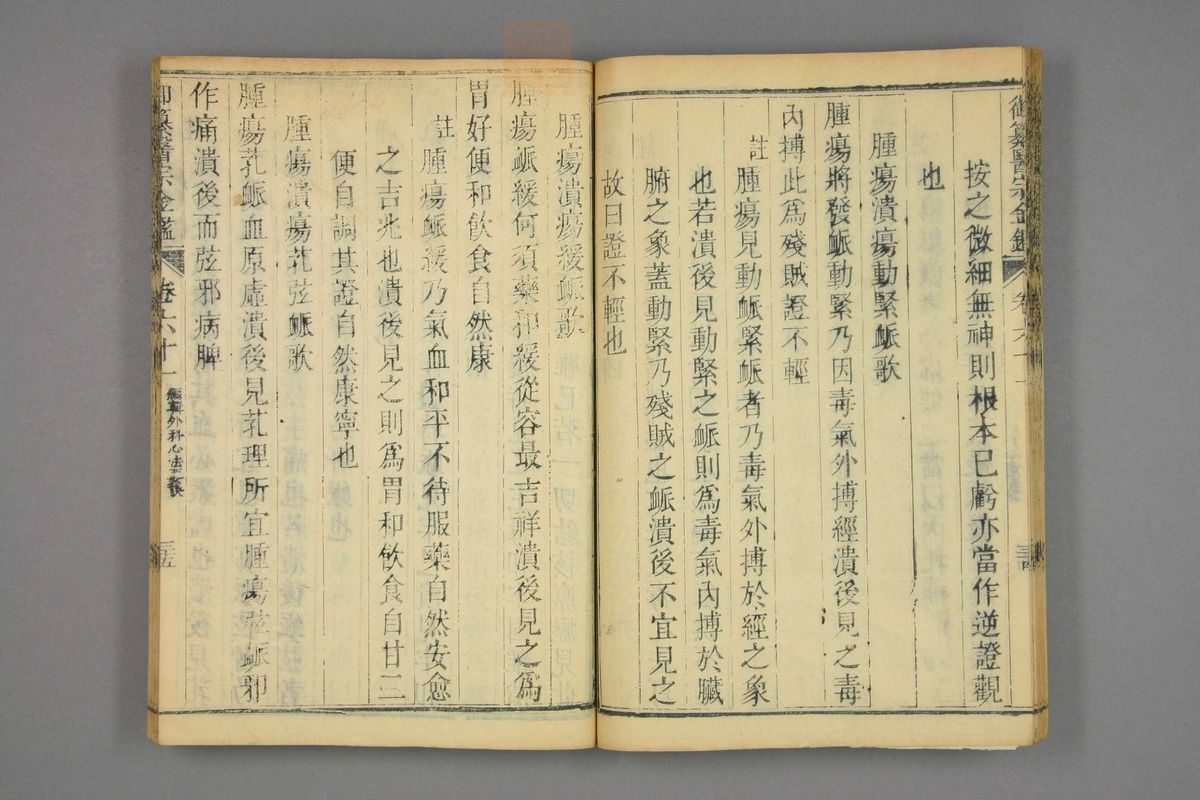 御纂醫宗金鑑
卷六十一
按之微細無神則根本已虧亦當作逆證觀
也
腫瘍潰瘍動緊衇歌
腫瘍將發衇動緊乃因毒氣外搏經潰後見之毒
內搏此爲殘賊證不輕
註
腫瘍見動衇緊衇者乃毒氣外搏於經之象
也若潰後見動緊之衇則爲毒氣內搏於臟
腑之象蓋動緊乃殘賊之衇潰後不宜見之
故曰證不輕也
腫瘍潰瘍緩衇歌
腫瘍衇緩何須藥和緩從容最吉祥潰後見之爲
胃好便和飲食自然康
註
腫瘍衇緩乃氣血和平不待服藥自然安愈
之吉兆也潰後見之則爲胃和飲食自甘二
便自調其證自然康寧也
腫瘍潰瘍芤弦衇歌
腫瘍芤衇血原虛潰後見芤理所宜腫瘍弦衇邪
作痛潰後而弦邪病脾
御纂醫宗金鑑
卷六十一
編輯外科心法要訣